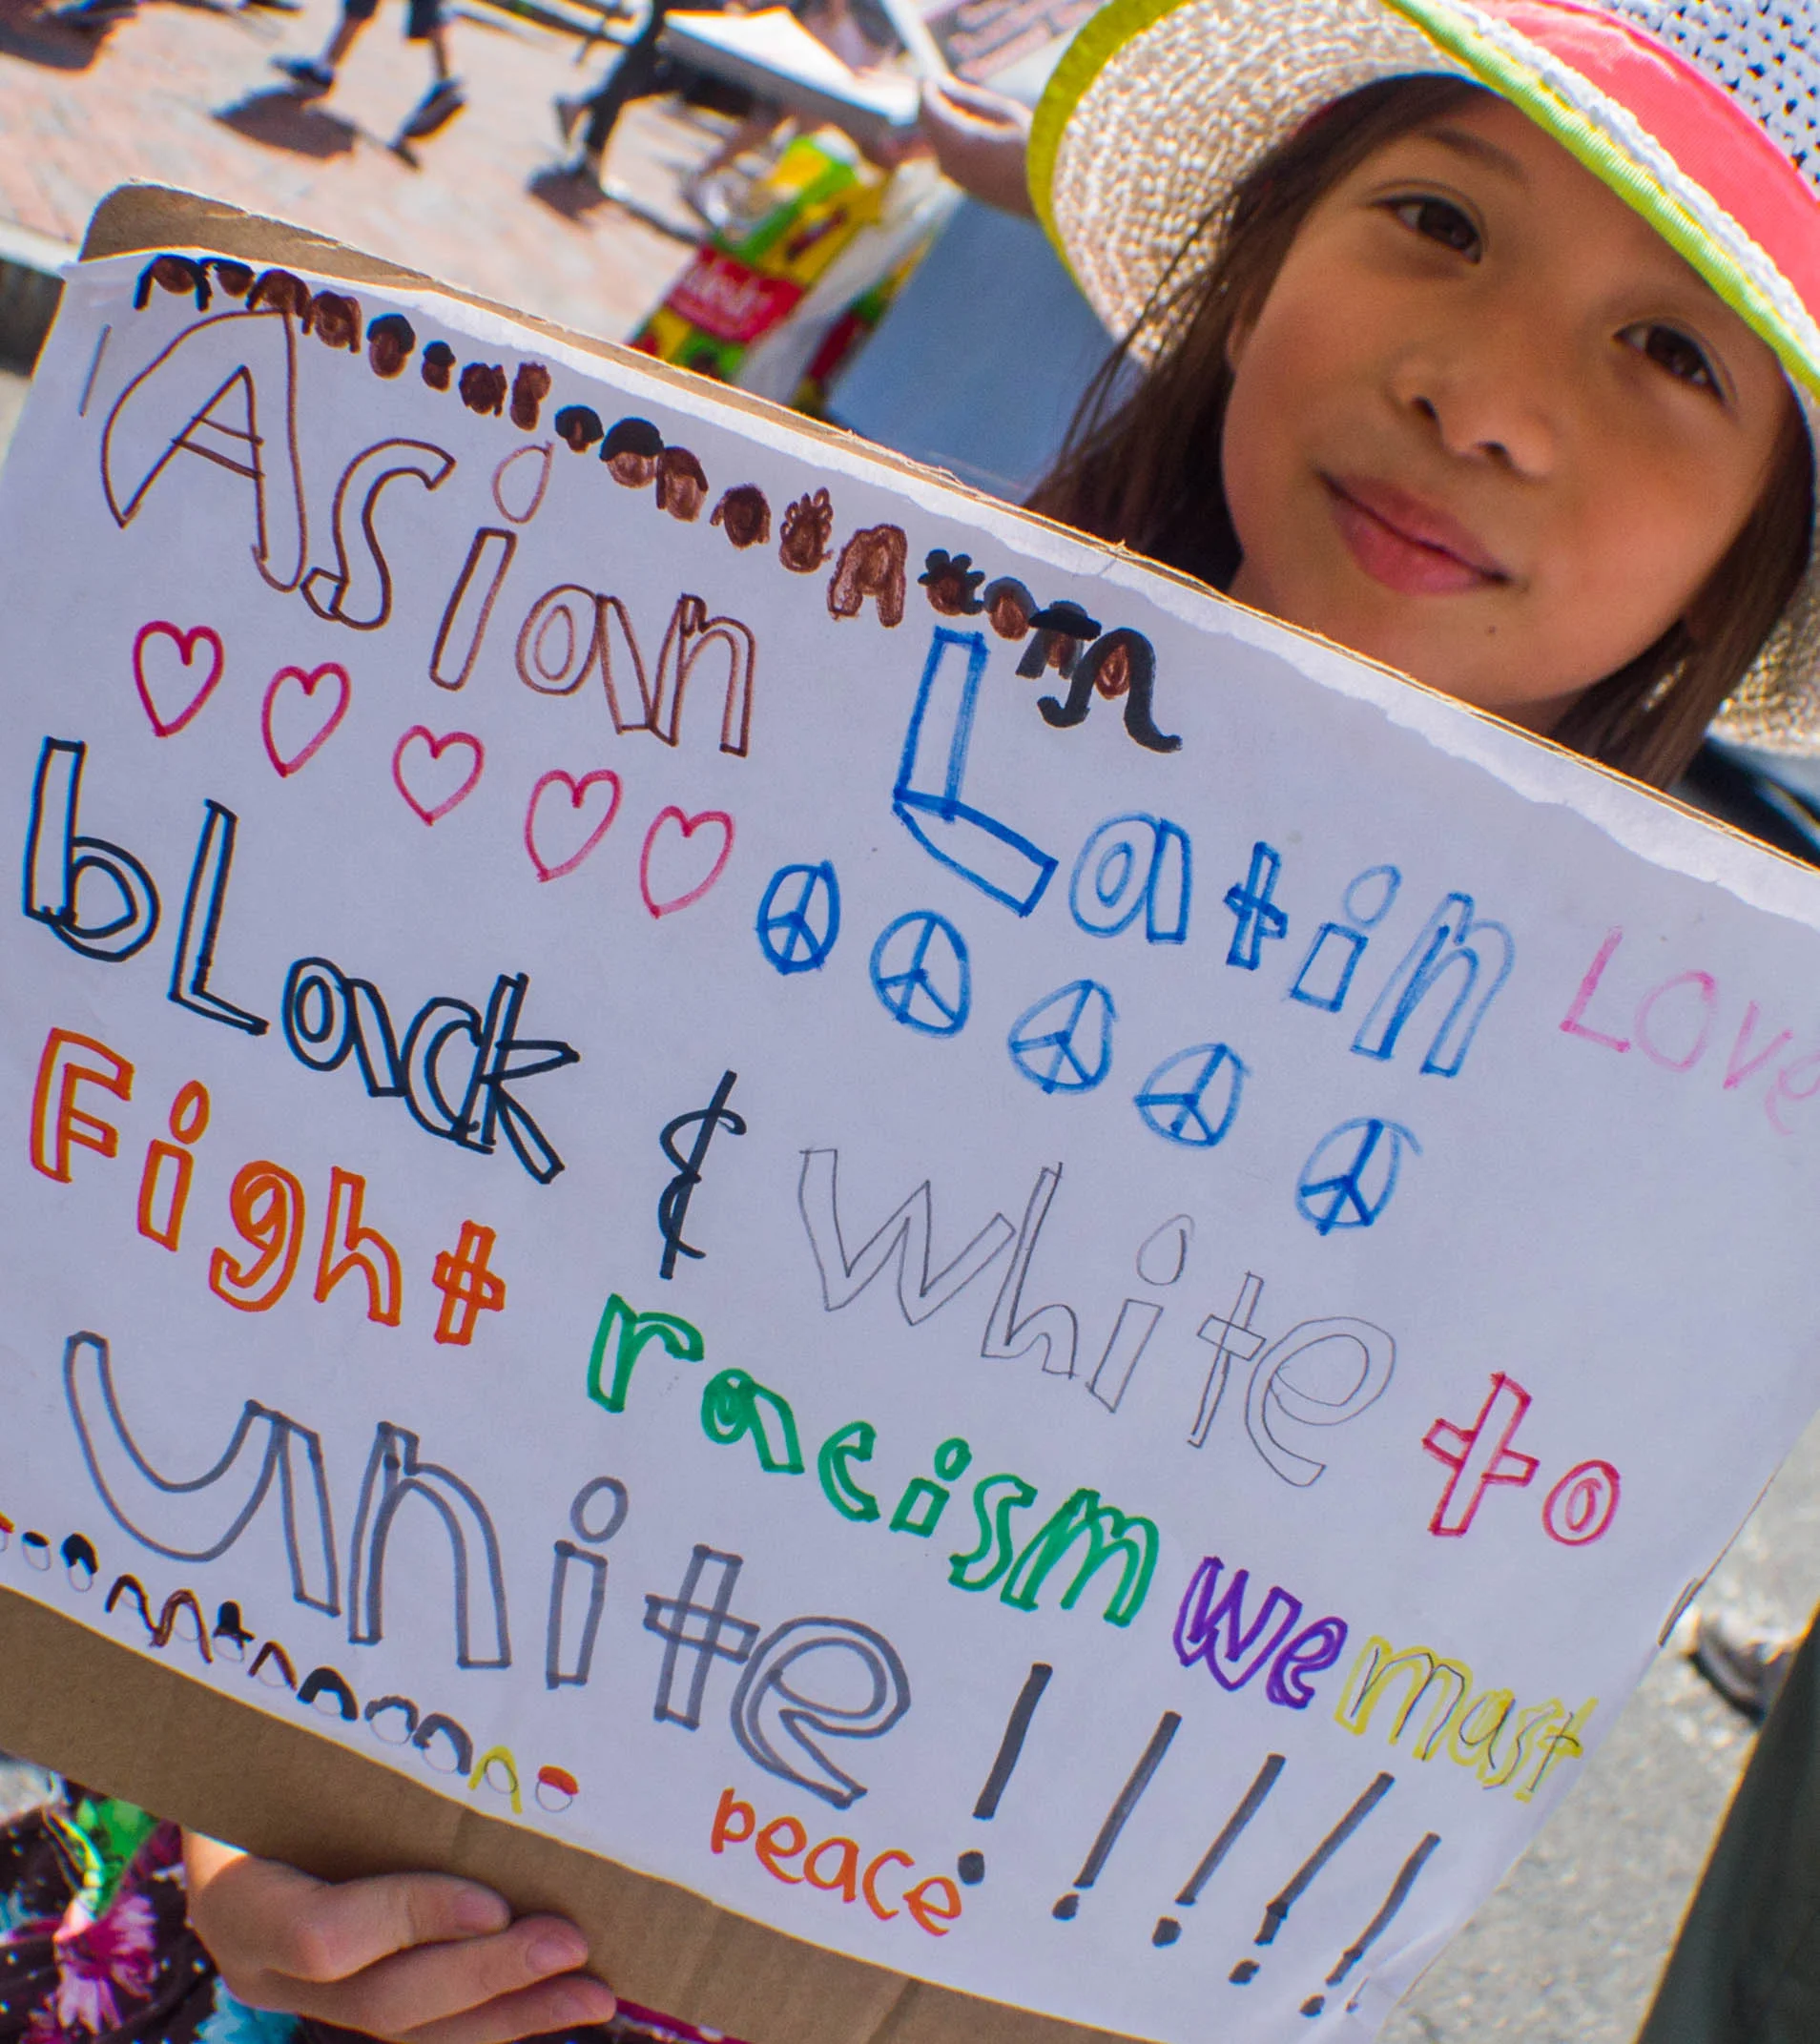 Asian Latin Love
bLack & White to
Fight racism we must
unite!!!!!
peace